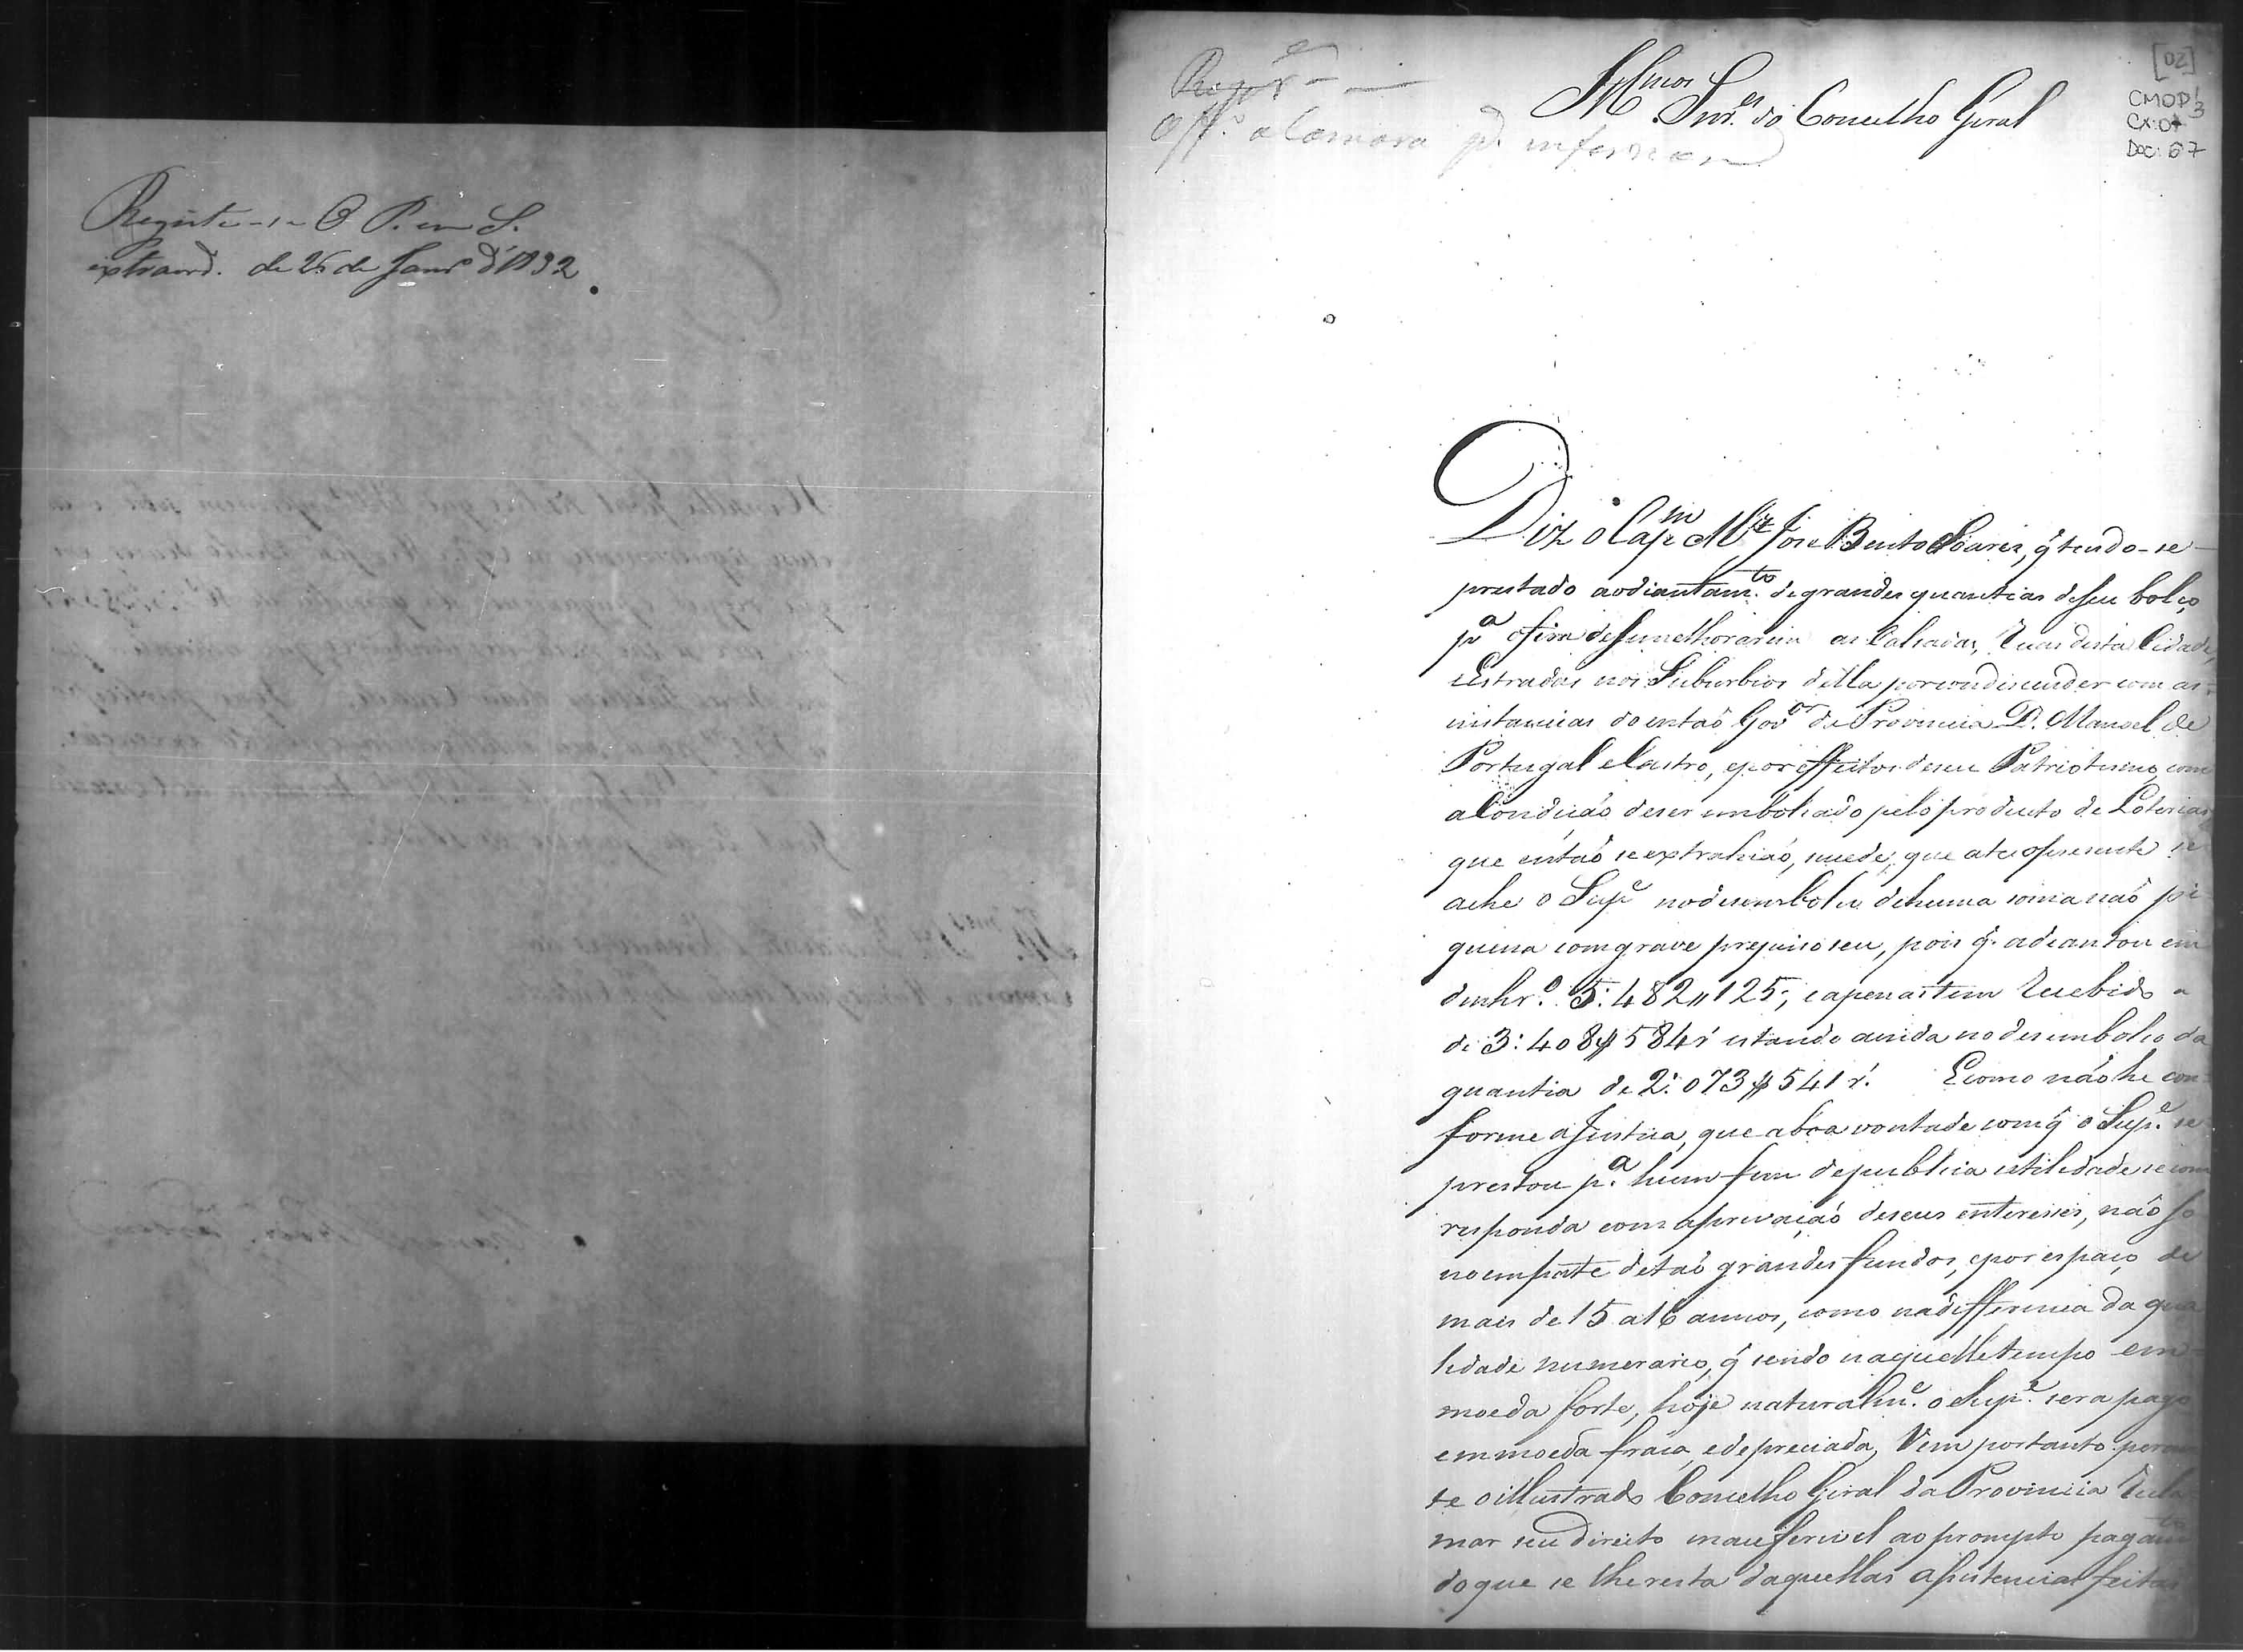 Registe-se e P. em S.
extraord. de 25 de Janro d'1832
Reqdo
Offo a Camara pa informar
Illmos Snres do Concelho Geral
[02]
CMOP 1/3
CX: 07
Doc: 67
Diz o Capm Mel José Bento Soares, q̃ tendo-se
prestado ao diantamto de grandes quantias de seu bolço
pa o fim de se melhorarem as Calsadas, Ruas desta Cidade,
e Estradas nos Suburbios della por condiscender com as
instancias do entaõ Govor da Provincia D. Manoel de
Portugal e Castro, e por effeitos de seu Patriotismo, com
a Condiçaõ de ser embolsado pelo producto de Loterias
que entaõ se extrahiaõ, sucede, que ate o presente se
ache o Supe no desembolso de huma soma naõ pe
quena com grave prejuiso seu, pois q̃ adiantou em
dinhro 5:482"125, e apenas tem recebido a
de 3:408$584 rs estando ainda no desembolso da
quantia de 2:073$541 r. E como não he con-
forme a Justiça, que a boa vontade com q̃ o Supe se
prestou pa hum fim de publica utilidade se com
responda com a privaçaõ de seus enteresses, não só
no empate de taõ grandes fundos, e por espaço de
mais de 15 a 16 annos, como na differença da qua
lidade numerario, q̃ sendo naquelle tempo em
moeda forte, hoje naturalme o Supe sera pago
em moeda fraca, e depreciada, Vem portanto peran
te o illustrado Concelho Geral da Provincia recla
mar seu direito inauferivel ao prompto pagamto
do que se lhe resta daquellas assistencias feitas